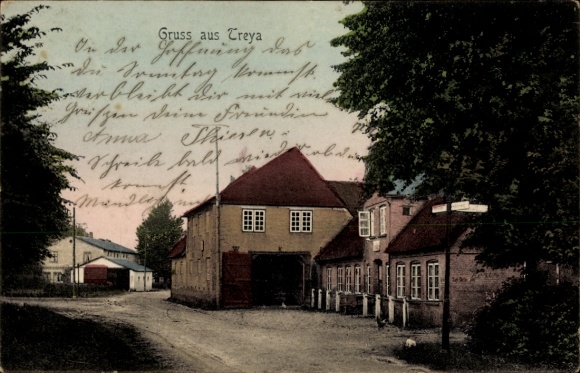 Gruss aus Treya
In der Hoffnung das
du Sonntag kommst
verbleibt dir mit vielen
Grüßen deine Freundin
Anna
Schreib bald wieder ob du
kommst